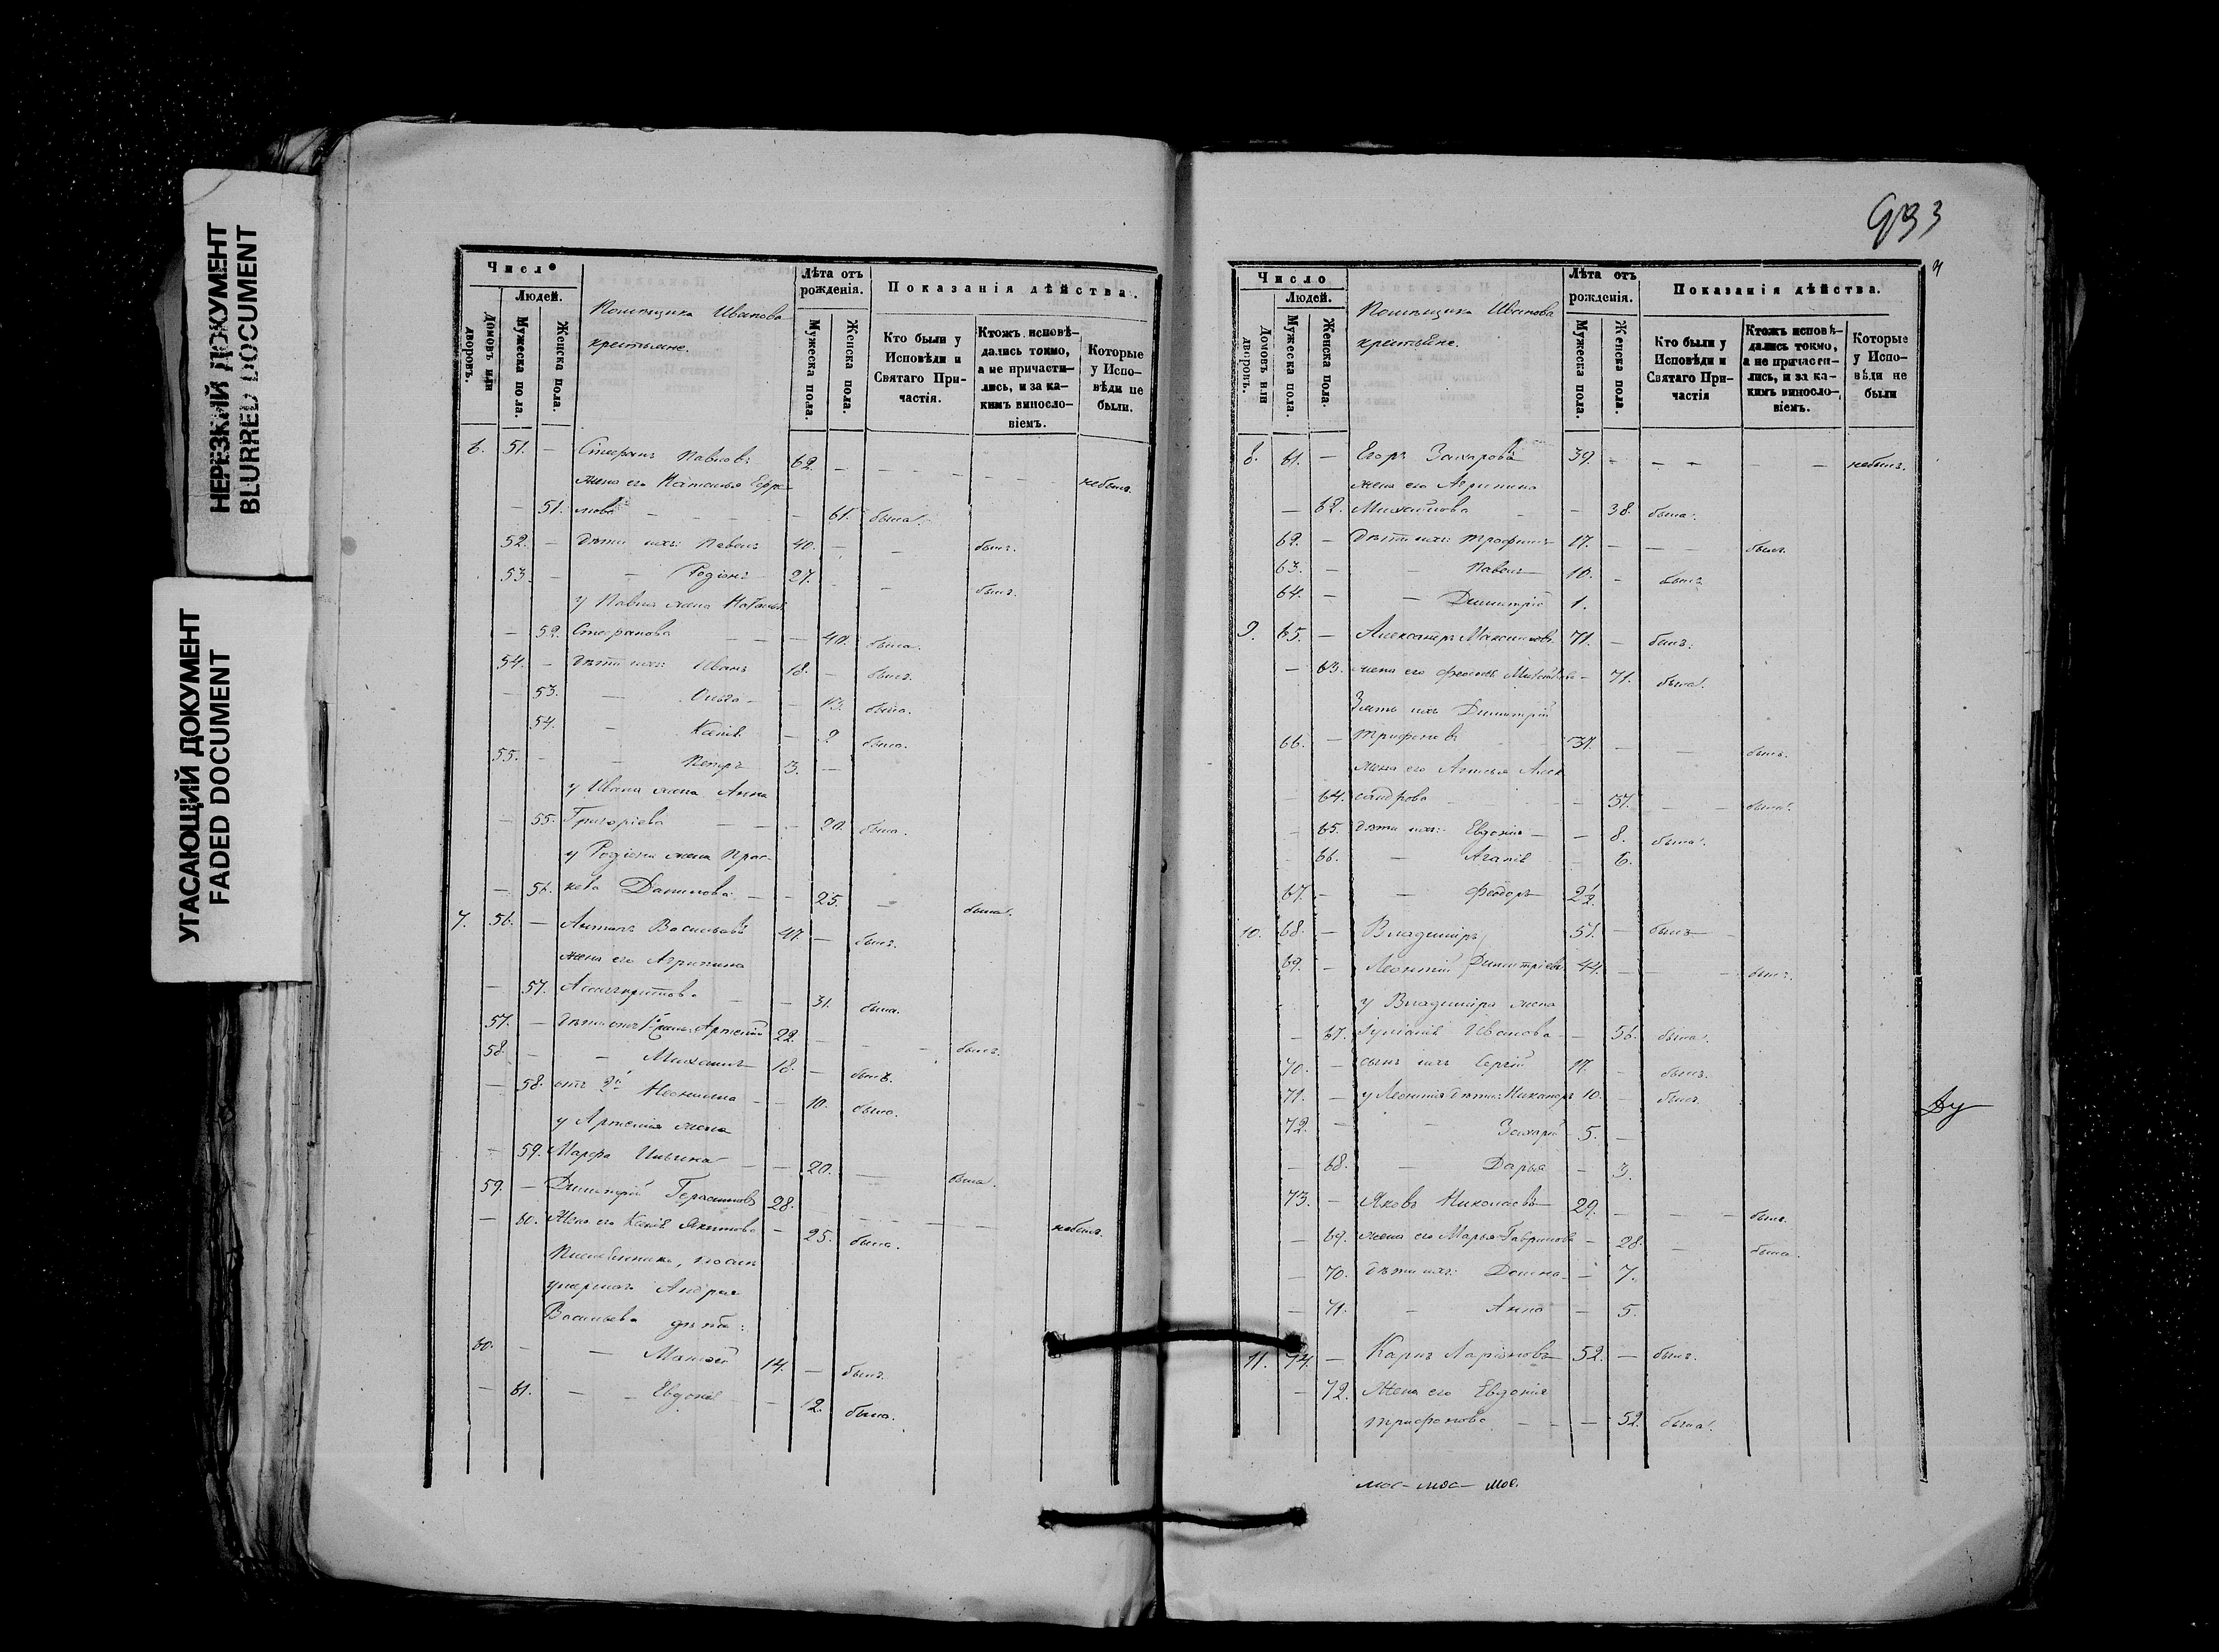 НЕРЕЗКИЙ ДОКУМЕНТ
BLURRED DOCUMENT
УГАСАЮЩИЙ ДОКУМЕНТ
FADED DOCUMENT
Число
Людей.
Домовъ или дворовъ.
Мужеска пола.
Женска пола.
Помѣщика Иванова
крестьяне.
Лѣта отъ рожденія.
Мужеска пола.
Женска пола.
Показанія дѣйства.
Кто были у Исповѣди и Святаго Причастія.
Ктожъ исповѣдались токмо, а не причастились, и за какимъ винословіемъ.
Которые у Исповѣди не были.
6. 51. — Стефанъ Павловъ 62. — — — — небылъ.
жена его Наталья
— 51. — 61. была.
52. — дѣти ихъ: Павелъ 40. — — былъ.
53. — — Родіонъ 27. — — былъ.
у Павла жена Наталья
— 52. Стефанова — — — 40. была.
54. — дѣти ихъ: Иванъ 18. — былъ.
— 53. — Ольга — — 13. была.
54. — Ксенія — 9 была.
55. — — Петръ 3. —
у Ивана жена Анна
— 55. Григоріева — — — 20. была.
у Родіона жена Прас-
— 56. кева Данилова — — 25. — была.
7. 56. — Антонъ Васильевъ 47. — былъ.
жена его Агрипина
— 57. — — 31. была.
57. — Арсеній 22. — — — былъ.
58. — — Михаилъ 18. — былъ.
— 58. отъ 2й — — 10. была.
у Арсенія жена
— 59. Марфа — — 20. — была.
59. — Димитрій Герасимовъ 28. — — — — небылъ.
— 60. Жена его Ксенія Якимова — 25. была.
умершаго Андрея
Васильева дѣти:
60. — — Матвѣй 14. — былъ.
— 61. — — Евдокія — 12. была.
933
Число
Людей.
Домовъ или дворовъ.
Мужеска пола.
Женска пола.
Помѣщика Иванова
крестьяне.
Лѣта отъ рожденія.
Мужеска пола.
Женска пола.
Показанія дѣйства.
Кто были у Исповѣди и Святаго Причастія
Ктожъ исповѣдались токмо, а не причастились, и за какимъ винословіемъ.
Которые у Исповѣди не были
8. 61. — Егоръ Захаровъ 39. — — — — — небылъ.
жена его Агрипина
— 62. Михайлова — — 38. была.
62. — дѣти ихъ: Трофимъ 17. — — — былъ.
63. — — Павелъ 10. — былъ
64. — — Димитрій 1.
9. 65. — Александръ Максимовъ 71. — былъ.
— 63. жена его — 71. была.
Зять ихъ Димитрій
66. — Трифоновъ 37. — — былъ.
жена его Алек-
— 64. сандрова — — 37. — — была.
— 65. дѣти ихъ: Евдокія — — 8. была.
— 66. — Агапія — 6.
67. — — Феодоръ 2½
10. 68. — Владиміръ 51. — былъ —
69. — Леонтій Димитріевы 44. — — былъ.
у Владиміра жена
— 67. Іуліанія Иванова — — 56. была.
70. — сынъ ихъ Сергій 17. — былъ.
71. — у Леонтія дѣти: Никаноръ 10. — былъ
72. — — Захарій 5. —
— 68. — Дарья — 3.
73. — Яковъ Николаевъ 29. — — — былъ.
— 69. жена его Марья Гаврилова — 28. — была.
— 70. дѣти ихъ: Домна — — 7.
— 71. — Анна — 5.
11. 74. — Карпъ Ларіоновъ 52. — былъ.
— 72. Жена его Евдокія
Трифонова — — — 52. была.